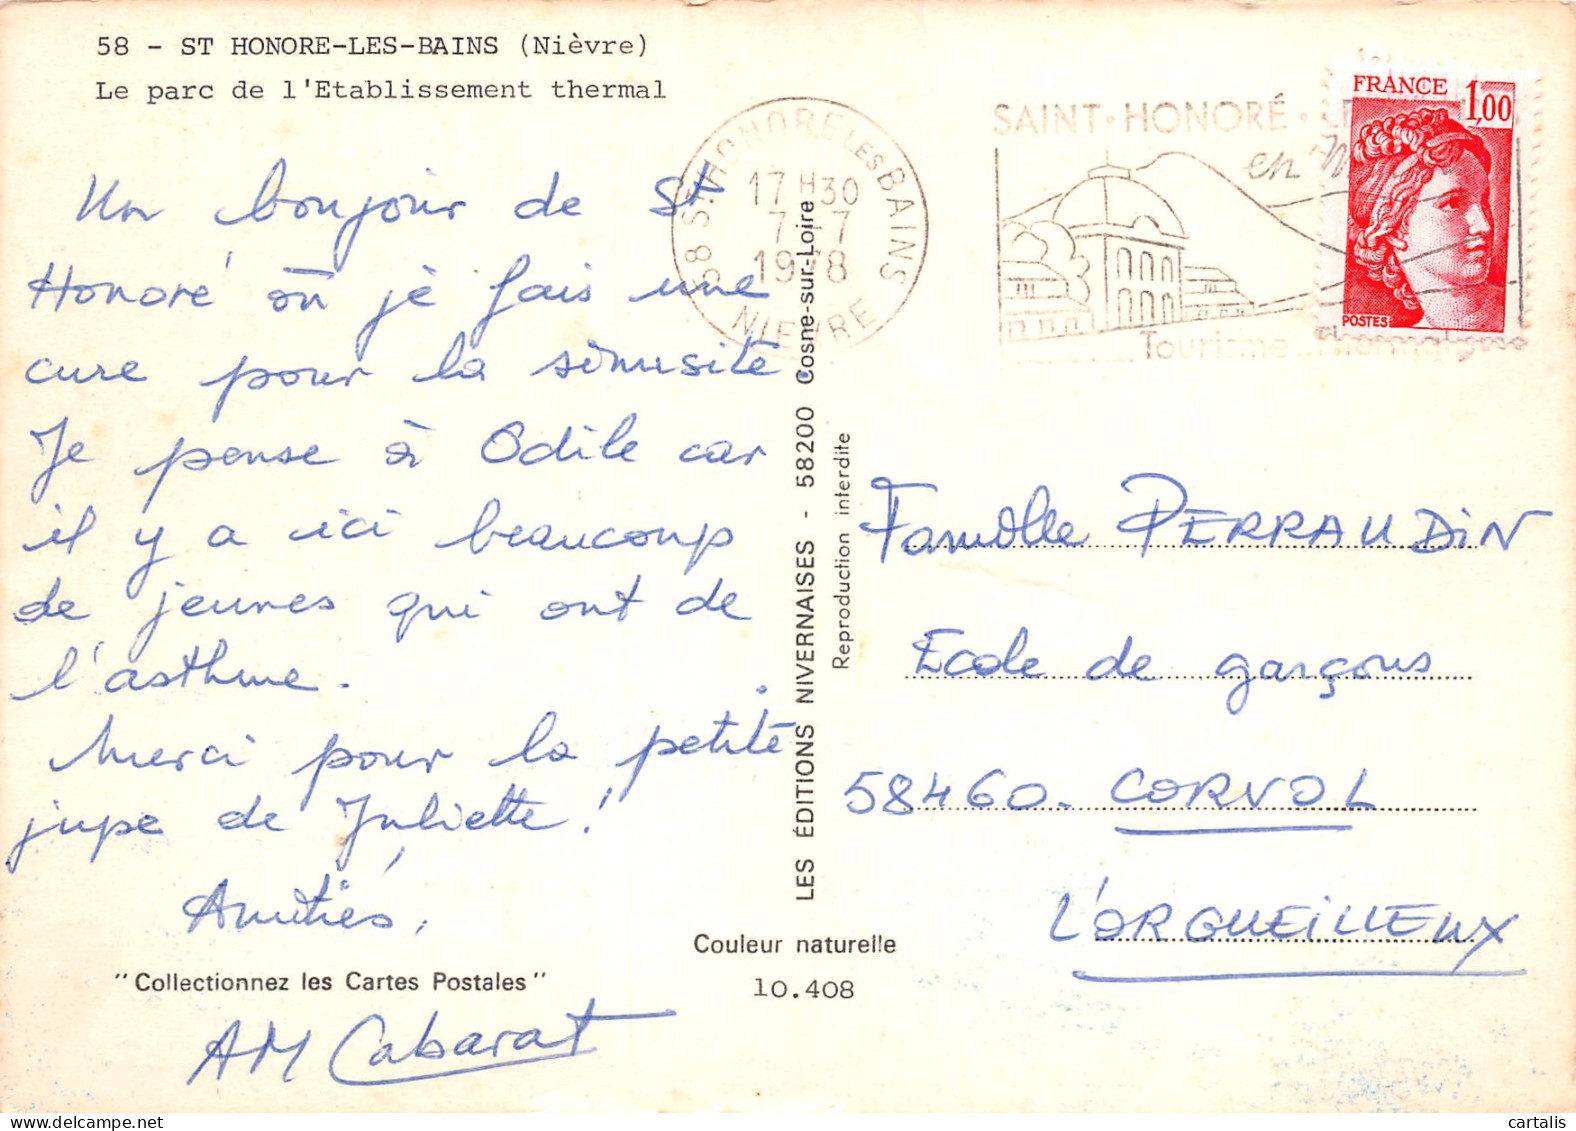 58 - ST HONORE-LES-BAINS (Nièvre)
Le parc de l'Etablissement thermal
Un bonjour de St
Honoré où je fais une
cure pour la sinusite.
Je pense à Odile car
il y a ici beaucoup
de jeunes qui ont de
l'asthme.
Merci pour la petite
jupe de Juliette !
Amitiés,
"Collectionnez les Cartes Postales"
AM Cabarat
58 ST HONORE LES BAINS
17 H 30
7-7
1978
NIEVRE
SAINT-HONORÉ
en
Tourisme
FRANCE 1,00
POSTES
LES ÉDITIONS NIVERNAISES - 58200 Cosne-sur-Loire
Reproduction interdite
Couleur naturelle
10.408
Famille PERRAUDIN
Ecole de garçons
58460. CORVOL
L'ORGUEILLEUX
cartalis